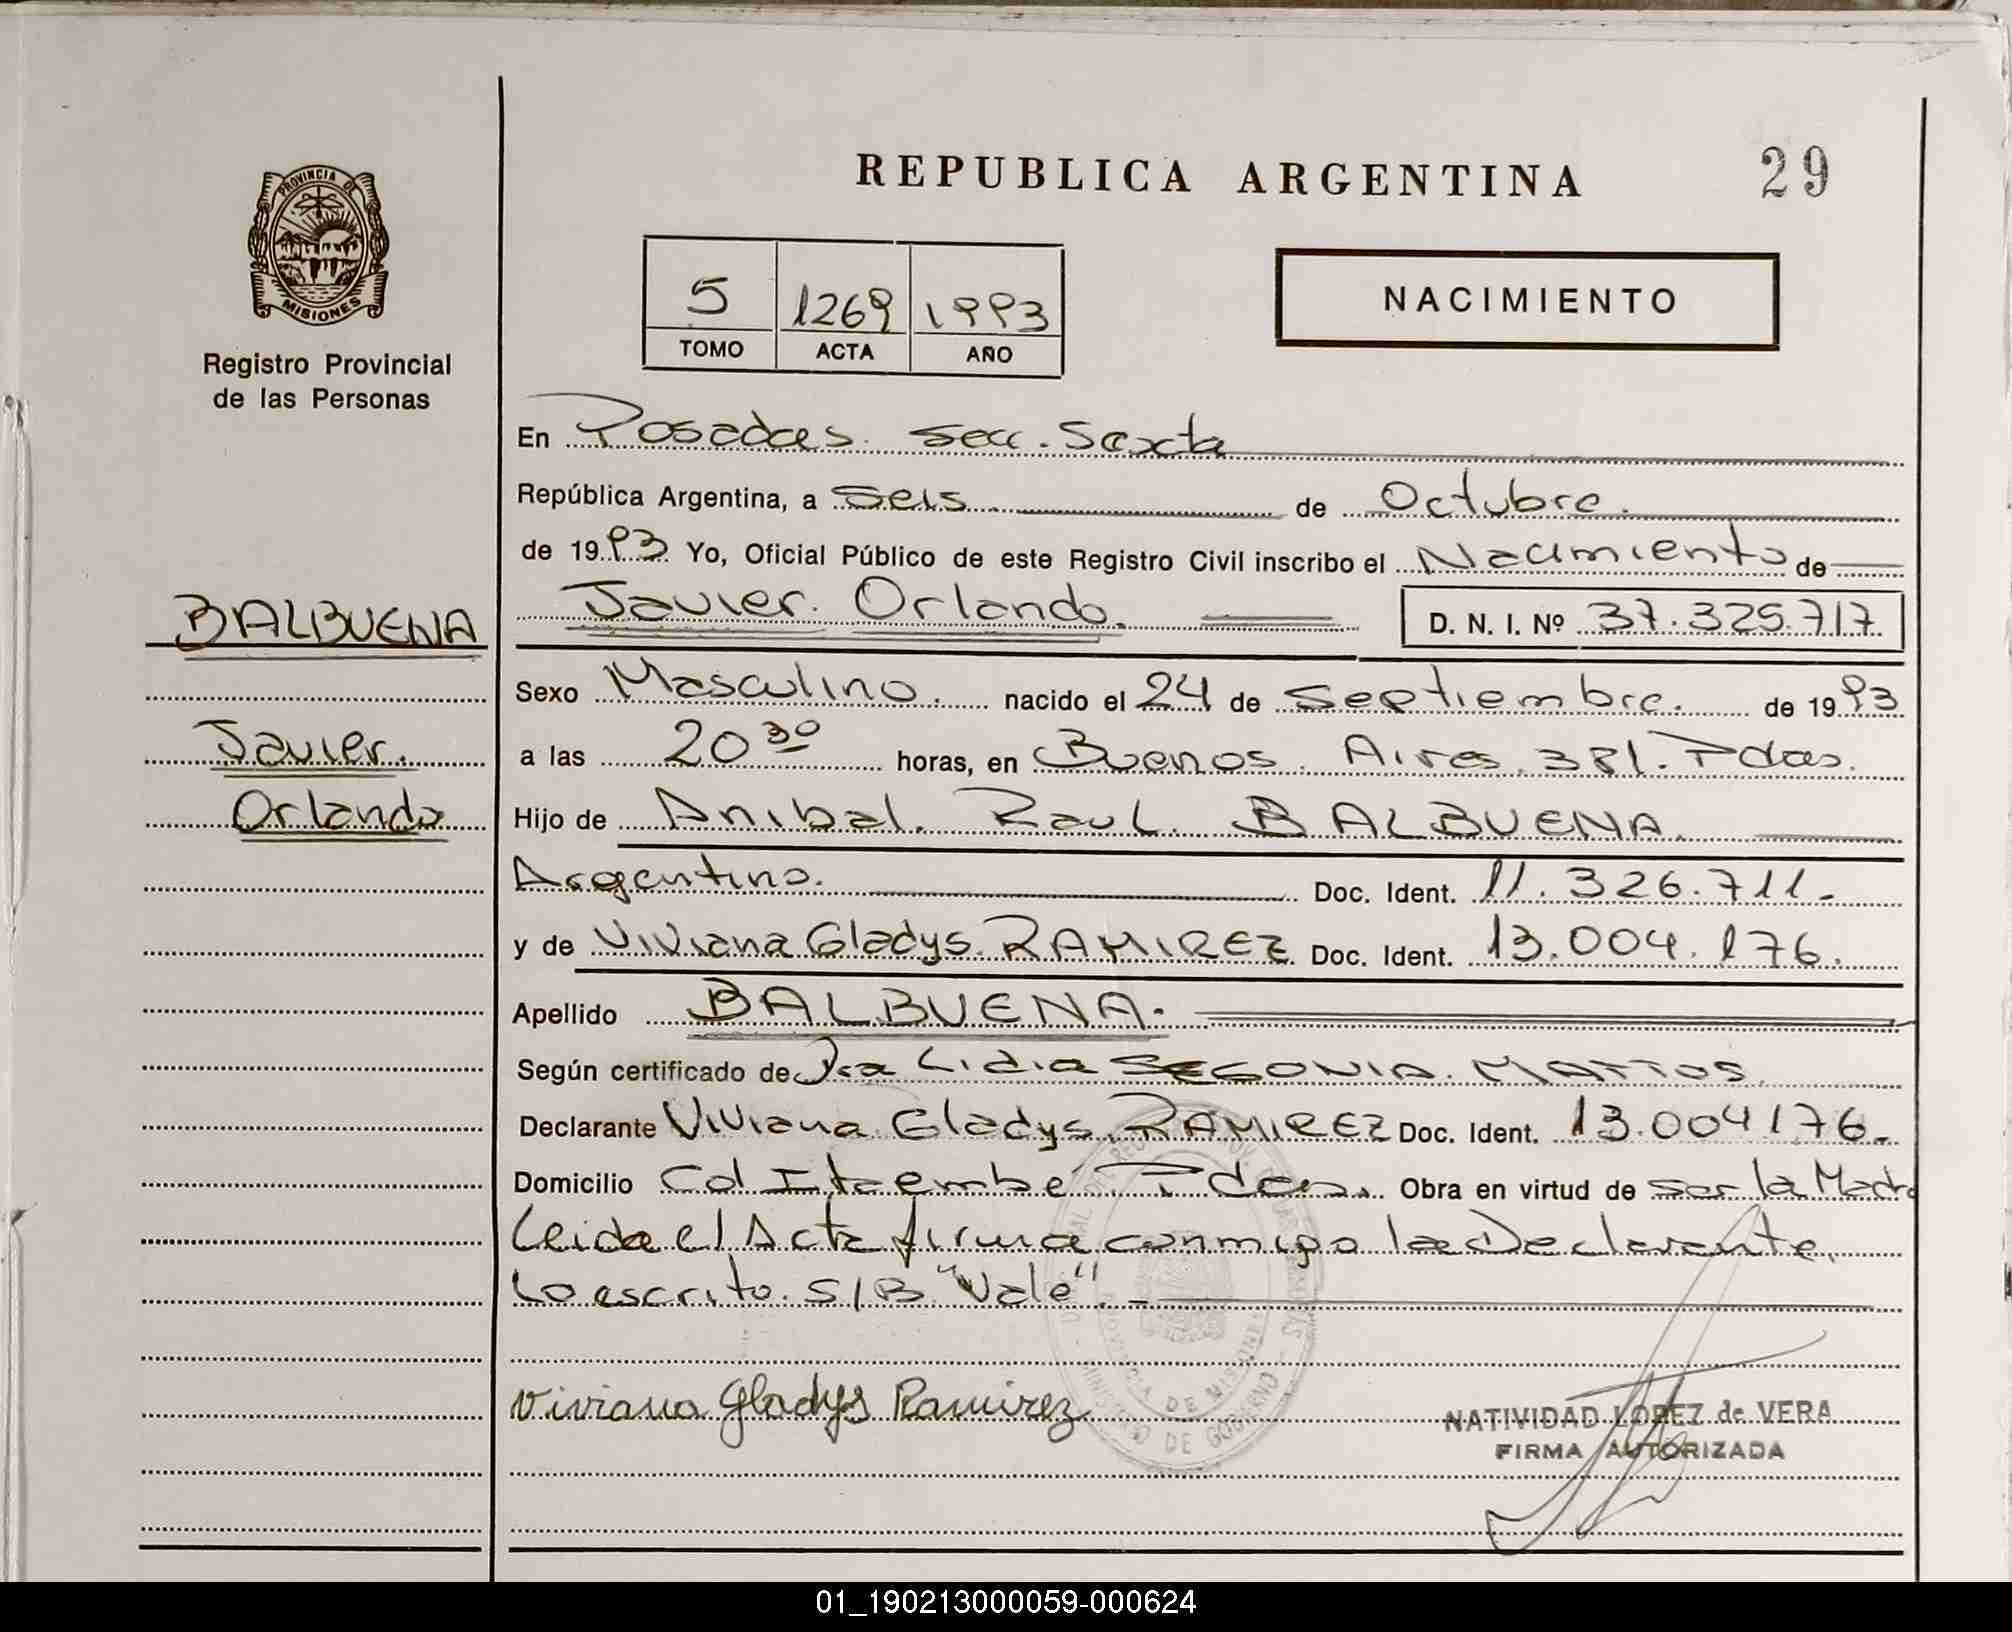 REPUBLICA ARGENTINA
29
PROVINCIA DE
MISIONES
Registro Provincial
de las Personas
5 1269 1993
TOMO ACTA AÑO
NACIMIENTO
En Posadas. Secc. Sexta
República Argentina, a Seis de Octubre.
de 1993 Yo, Oficial Público de este Registro Civil inscribo el Nacimiento de
BALBUENA
Javier. Orlando.
D. N. I. Nº 37.325.717
Sexo Masculino. nacido el 24 de Septiembre. de 1993
Javier.
a las 20 30 horas, en Buenos Aires. 381. Pdas.
Orlando
Hijo de Anibal. Raul. BALBUENA.
Argentino. Doc. Ident. 11.326.711.-
y de Viviana Gladys. RAMIREZ. Doc. Ident. 13.004.176.
Apellido BALBUENA.
Según certificado de Dra Lidia SEGOVIA. MATTOS.
Declarante Viviana Gladys. RAMIREZ Doc. Ident. 13.004176.-
Domicilio Col Itaembé. Pdas. Obra en virtud de ser la Madre
Leida el Acta firma conmigo la Declarante.
Lo escrito. S/B "Vale".-
Viviana Gladys Ramirez
PROVINCIA DE MISIONES
MINISTERIO DE GOBIERNO
NATIVIDAD LOPEZ de VERA
FIRMA AUTORIZADA
01_190213000059-000624